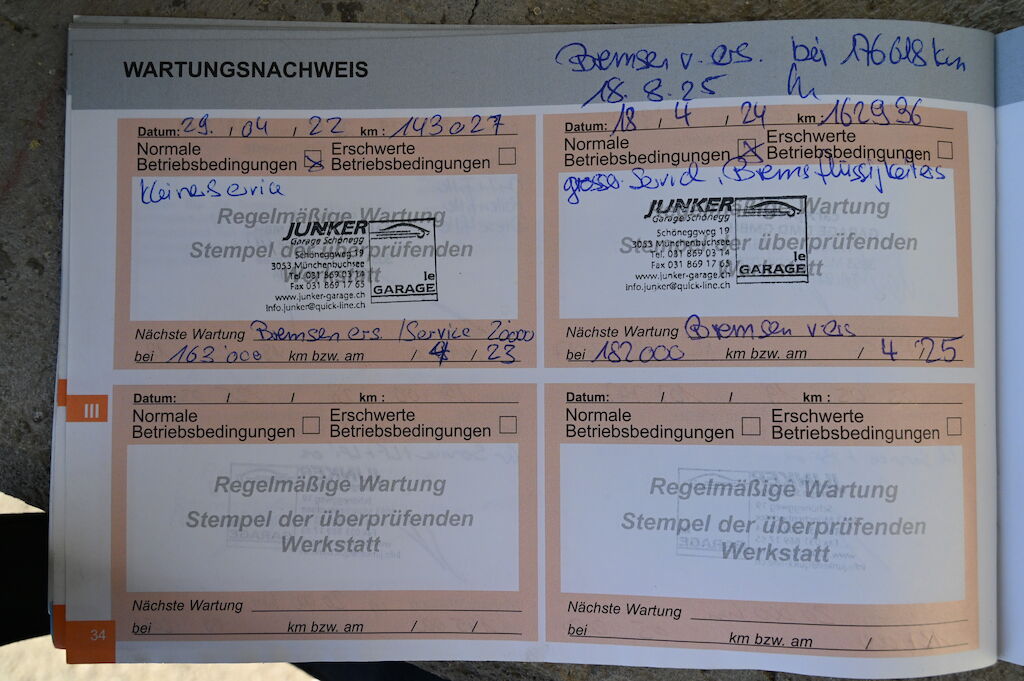 WARTUNGSNACHWEIS
Bremsen v. ers. bei 176618 km
18. 8. 25
Datum: 29. / 04 / 22 km: 143027
Normale Betriebsbedingungen
Erschwerte Betriebsbedingungen
kleiner Service
Regelmäßige Wartung
Stempel der überprüfenden
JUNKER
Garage Schönegg
Schöneggweg 19
3053 Münchenbuchsee
Tel. 031 869 03 14
Fax 031 869 17 65
www.junker-garage.ch
info.junker@quick-line.ch
le
GARAGE
Nächste Wartung Bremsen ers. / Service 20000
bei 163'000 km bzw. am / 4 / 23
Datum: 18 / 4 / 24 km: 162936
Normale Betriebsbedingungen
Erschwerte Betriebsbedingungen
grosser Service, Bremsflüssigkeit ers
Wartung
Stempel der überprüfenden
Werkstatt
JUNKER
Garage Schönegg
Schöneggweg 19
3053 Münchenbuchsee
Tel. 031 869 03 14
Fax 031 869 17 65
www.junker-garage.ch
info.junker@quick-line.ch
le
GARAGE
Nächste Wartung Bremsen v ers
bei 182000 km bzw. am / 4 / 25
III
Datum: / / km :
Normale Betriebsbedingungen
Erschwerte Betriebsbedingungen
Regelmäßige Wartung
Stempel der überprüfenden
Werkstatt
Nächste Wartung
bei km bzw. am / /
Datum: / / km :
Normale Betriebsbedingungen
Erschwerte Betriebsbedingungen
Regelmäßige Wartung
Stempel der überprüfenden
Werkstatt
Nächste Wartung
bei km bzw. am / /
34